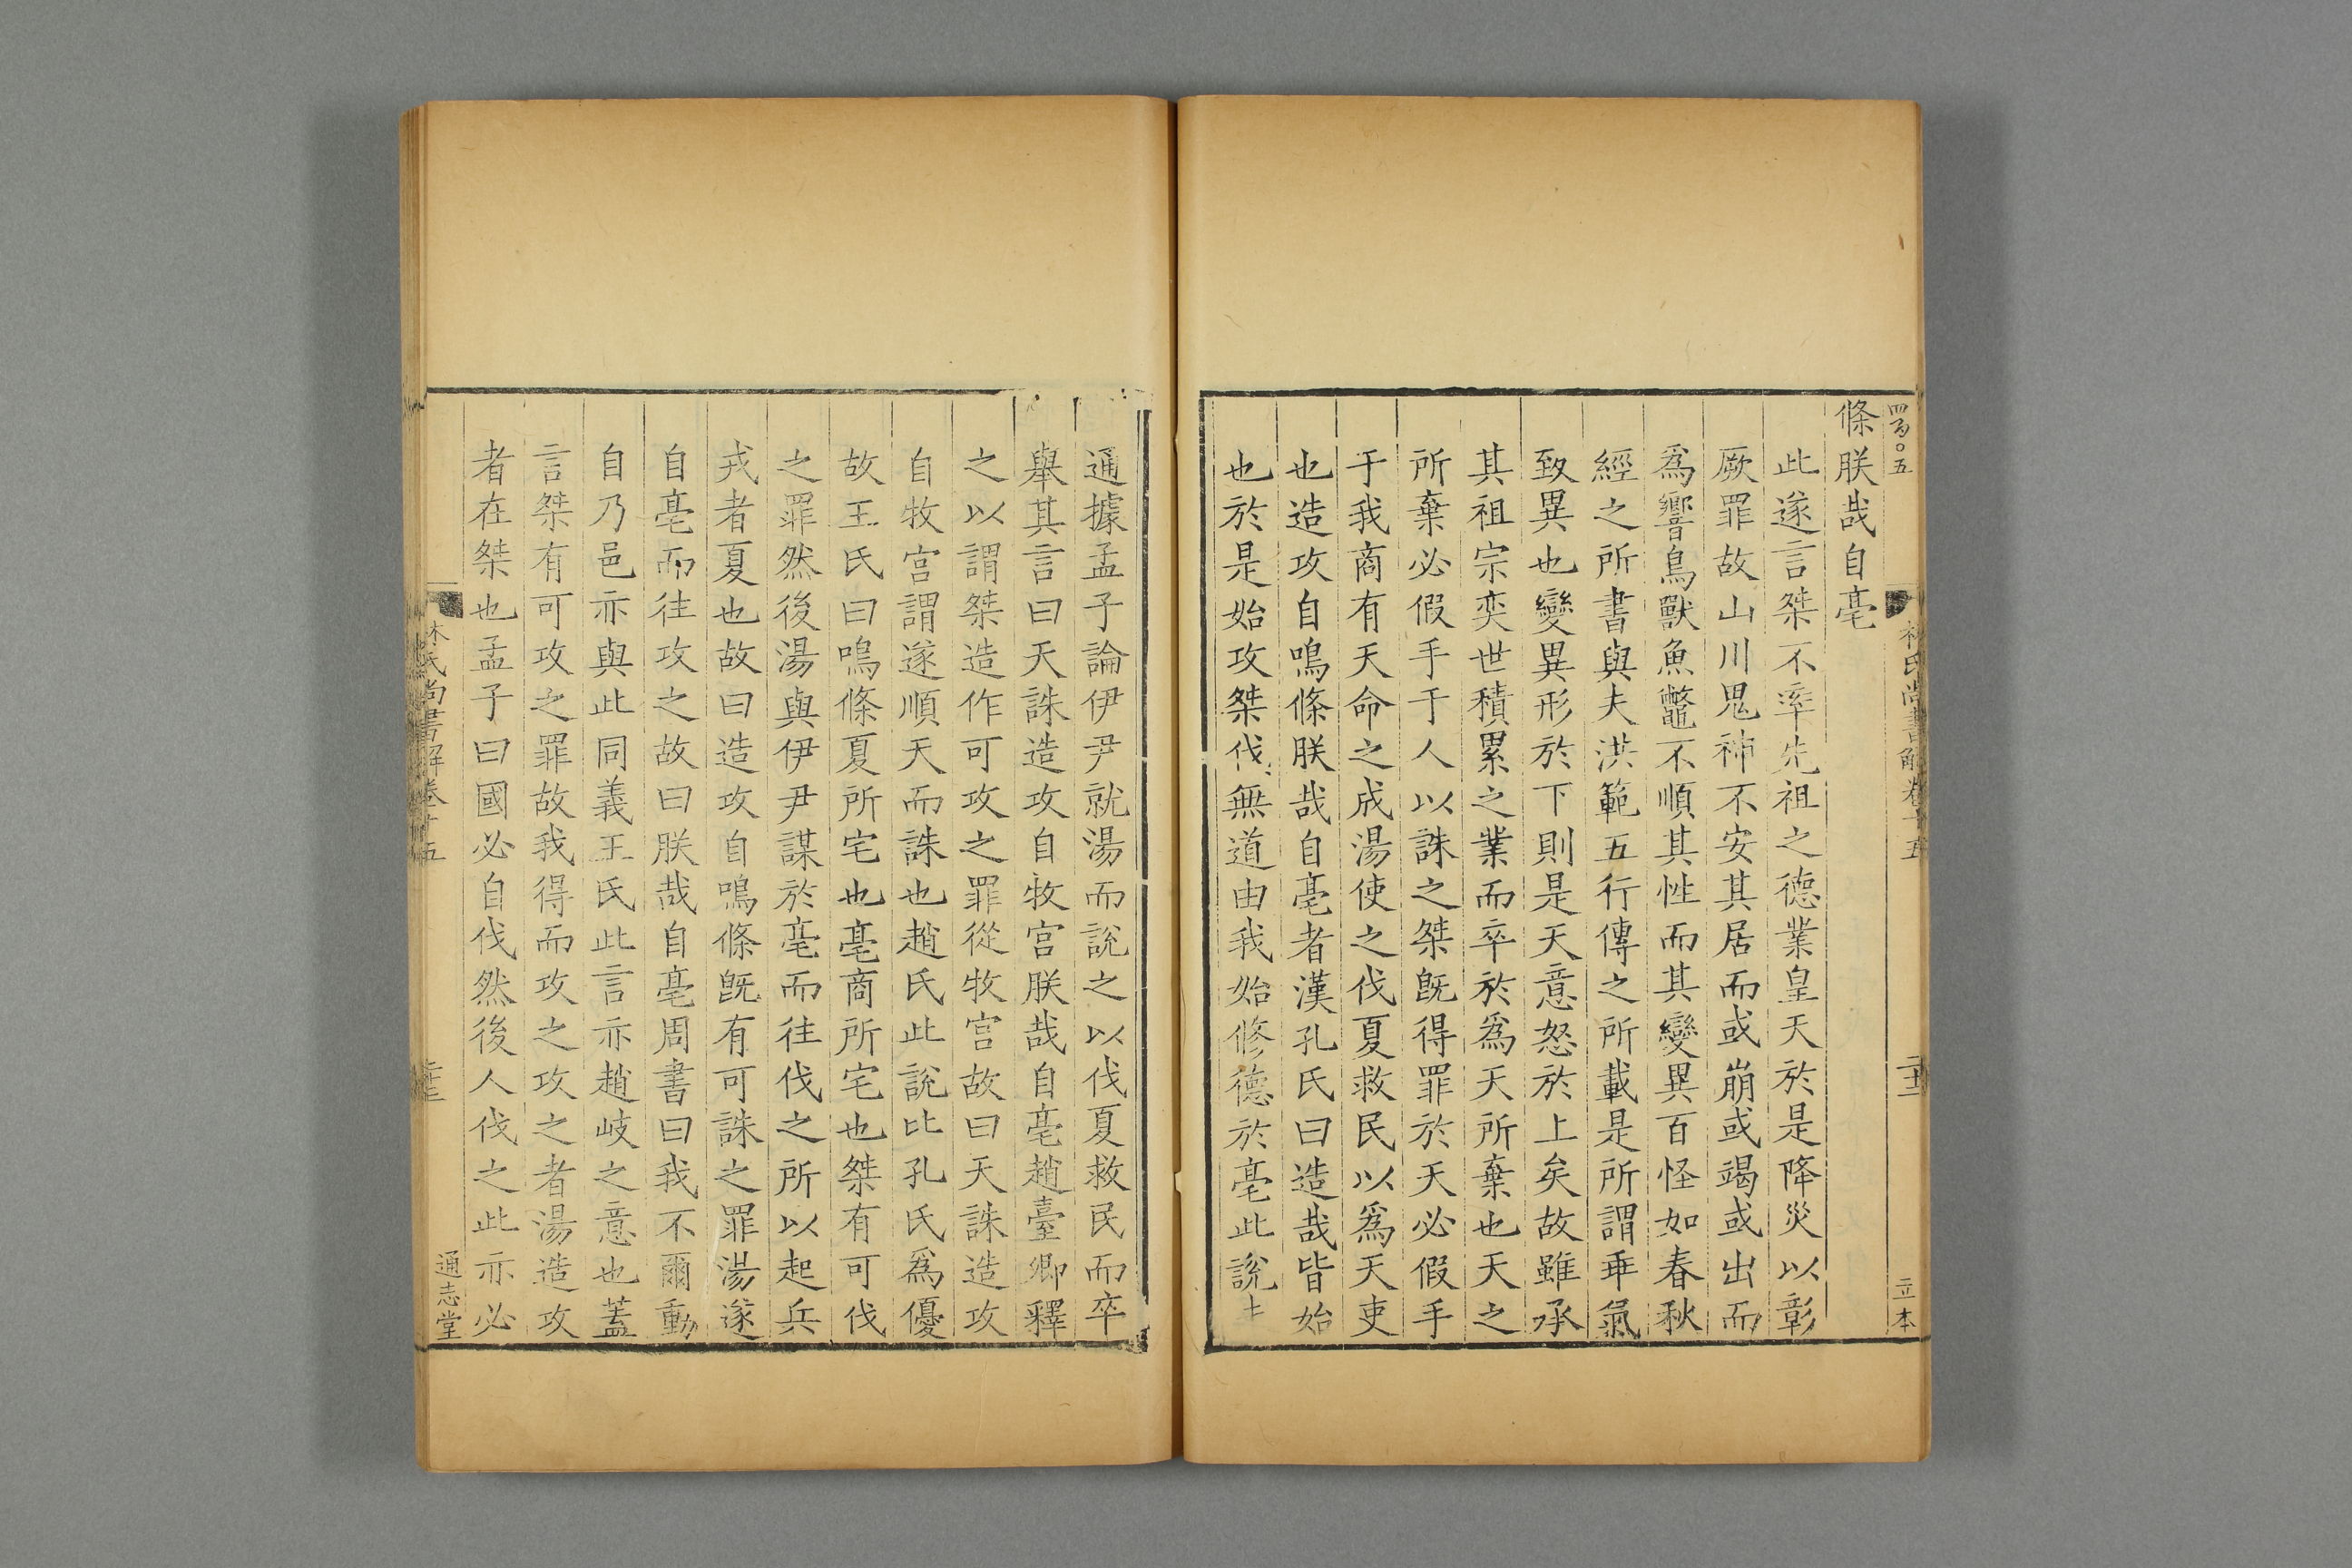 條朕哉自亳
此遂言桀不率先祖之德業皇天於是降災以彰
厥罪故山川鬼神不安其居而或崩或竭或出而
爲響鳥獸魚鼈不順其性而其變異百怪如春秋
經之所書與夫洪範五行傳之所載是所謂乖氣
致異也變異形於下則是天意怒於上矣故雖承
其祖宗奕世積累之業而卒於爲天所棄也天之
所棄必假手于人以誅之桀旣得罪於天必假手
于我商有天命之成湯使之伐夏救民以爲天吏
也造攻自鳴條朕哉自亳者漢孔氏曰造哉皆始
也於是始攻桀伐無道由我始修德於亳此說
通據孟子論伊尹就湯而說之以伐夏救民而卒
舉其言曰天誅造攻自牧宫朕哉自亳趙臺卿釋
之以謂桀造作可攻之罪從牧宫故曰天誅造攻
自牧宫謂遂順天而誅也趙氏此說比孔氏爲優
故王氏曰鳴條夏所宅也亳商所宅也桀有可伐
之罪然後湯與伊尹謀於亳而往伐之所以起兵
戎者夏也故曰造攻自鳴條旣有可誅之罪湯遂
自亳而往攻之故曰朕哉自亳周書曰我不爾動
自乃邑亦與此同義王氏此言亦趙岐之意也蓋
言桀有可攻之罪故我得而攻之攻之者湯造攻
者在桀也孟子曰國必自伐然後人伐之此亦必
林氏尚書解卷十五
通志堂